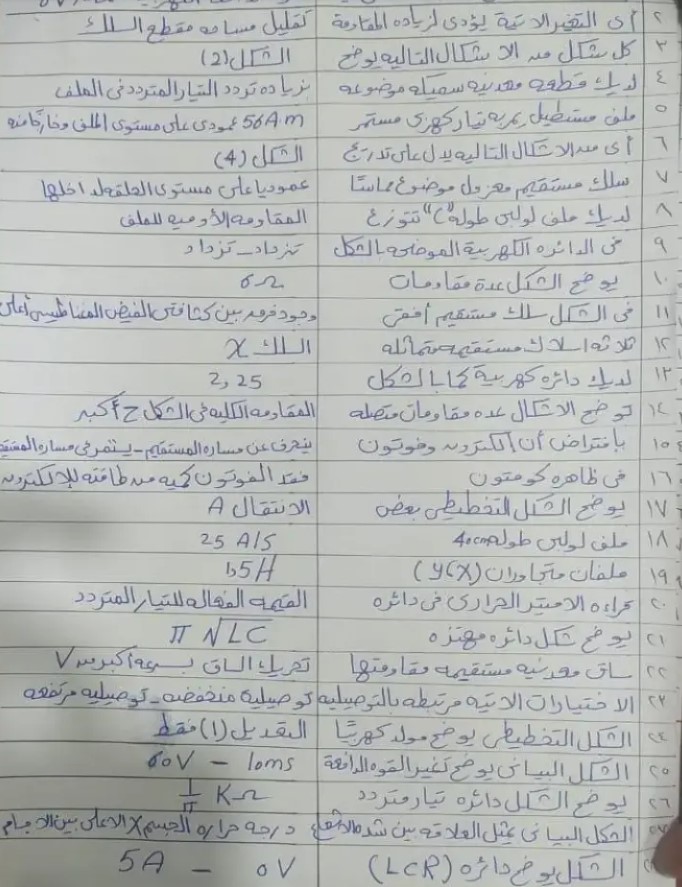 ٢ أى التغيرات الاتية يؤدى لزيادة المقاومة تقليل مساحه مقطع السلك
٣ كل شكل من الاشكال التاليه يوضح الشكل (2)
٤ لديك قطعه معدنيه سميكه موضوعه بزياده تردد التيار المتردد فى الملف
٥ ملف مستطيل يمر به تيار كهربى مستمر 56A.m عمودى على مستوى الملف وخارجًا منه
٦ أى من الاشكال التاليه يدل على تدريج الشكل (4)
٧ سلك مستقيم معزول موضوع مماسًا عموديا على مستوى الحلقه لداخلها
٨ لديك ملف لولبى طوله "L" تتوزع المقاومه الأوميه للملف
٩ فى الدائره الكهربية الموضحه بالشكل تزداد - تزداد
١٠ يوضح الشكل عدة مقاومات 6Ω
١١ فى الشكل سلك مستقيم أفقى وجود فرق بين كثافتى الفيض المغناطيسى أعلى
١٢ ثلاثه اسلاك مستقيمه متماثله السلك X
١٣ لديك دائره كهربية كما بالشكل 2,25
١٤ توضح الاشكال عده مقاومات متصله المقاومه الكليه فى الشكل ج أكبر
١٥ بافتراض أن إلكترون وفوتون ينحرف عن مساره المستقيم - يستمر فى مساره
١٦ فى ظاهره كومتون فقد الفوتون كميه من طاقته للإلكترون
١٧ يوضح الشكل التخطيطى بعض الانتقال A
١٨ ملف لولبى طوله 40cm 25 A/S
١٩ ملفان متجاوران (X) (y) 1,5H
٢٠ قراءه الاميتر الحرارى فى دائره القيمه الفعاله للتيار المتردد
٢١ يوضح شكل دائره مهتزه π√LC
٢٢ ساق معدنيه مستقيمه مقاومتها تحريك الساق بسرعه أكبر من V
٢٣ الاختيارات الاتيه مرتبطه بالتوصيليه توصيليه منخفضه - توصيليه مرتفعه
٢٤ الشكل التخطيطى يوضح مولد كهربيًا التعديل (1) فقط
٢٥ الشكل البيانى يوضح تغير القوه الدافعة 60V – 10ms
٢٦ يوضح الشكل دائره تيار متردد 1/π KΩ
٢٧ الشكل البيانى يمثل العلاقه بين شده الاشعاع درجه حراره الجسم X الاعلى بين الاجسام
الشكل يوضح دائره (LCR) 5A – 0V